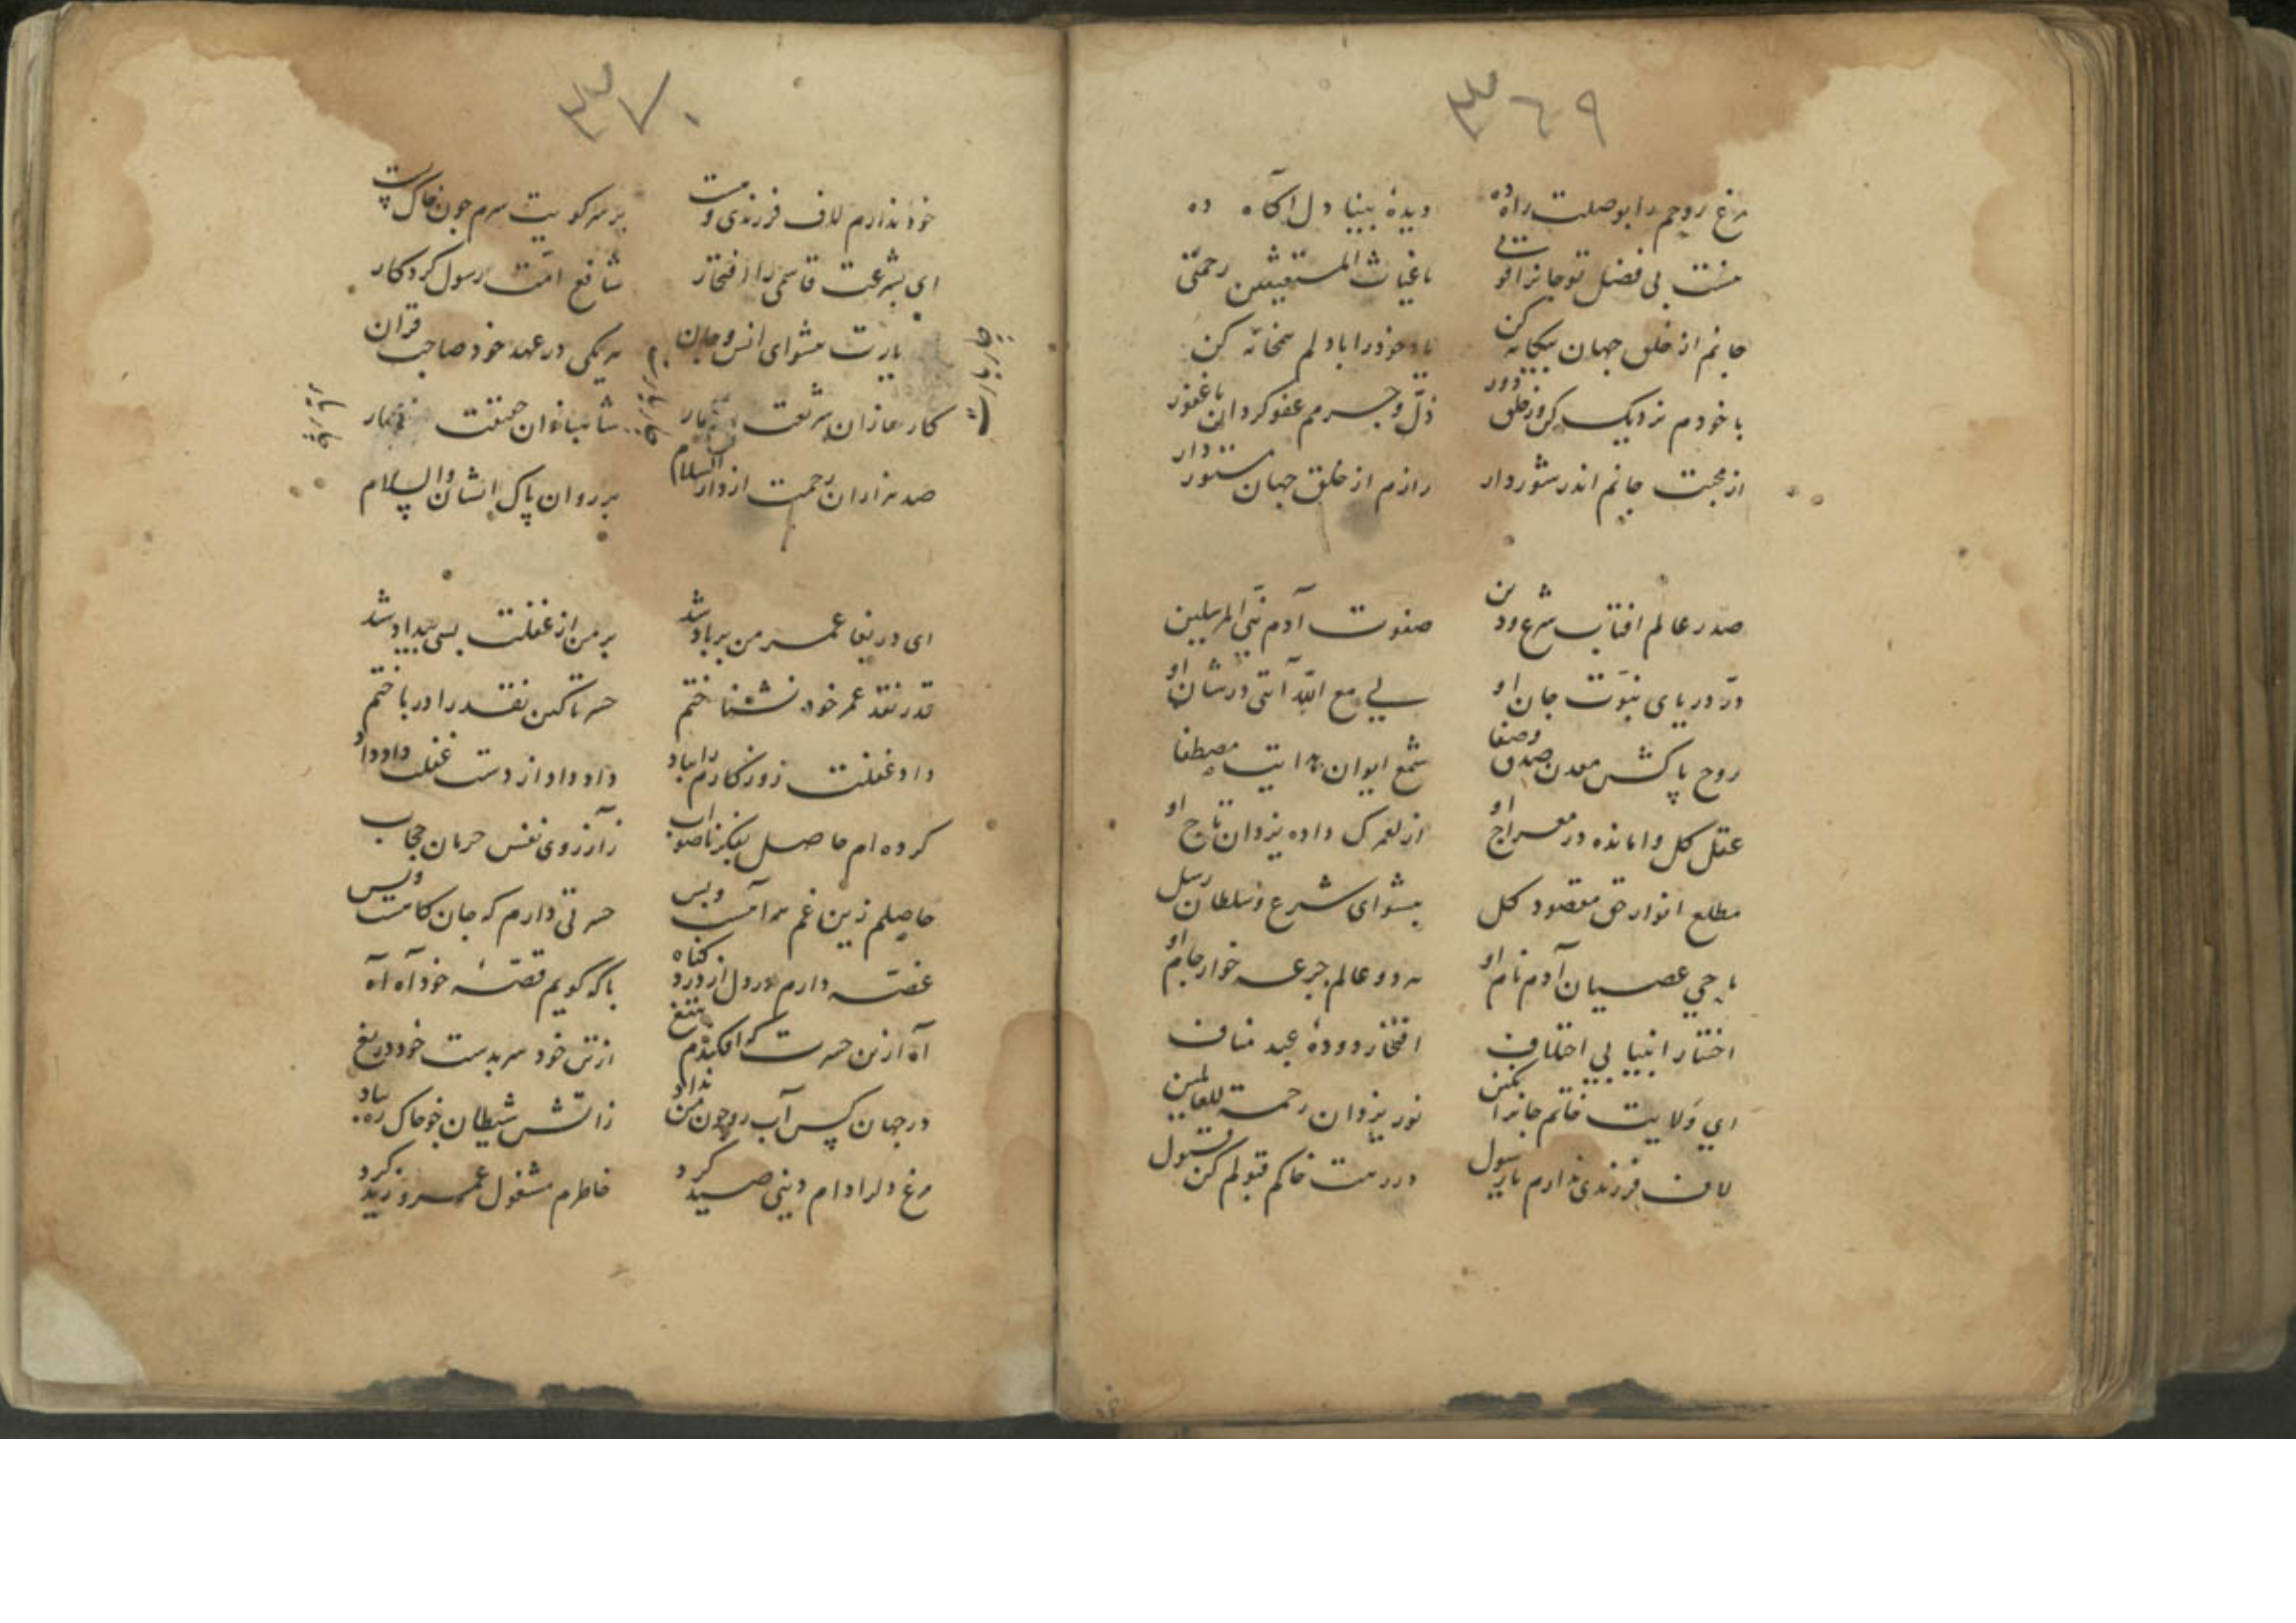 ٣٦٩
مرغ روحم را بوصلت راه ده دیدهٔ بینا و دل آگاه ده
نیست بی فضل تو جانرا قوتی یا غیاث المستغیثین رحمتی
جانم از خلق جهان بیکانه کن یاد خود را با دلم همخانه کن
با خودم نزدیک کن وز خلق دور ذلّ و جرمم عفو کردان یا غفور
از محبت جانم اندر شور دار رازم از خلق جهان مستور دار
صدر عالم افتاب شرع و دین صفوت آدم نبی المرسلین
درّ دریای نبوّت جان او لی مع اللّه آیتی در شان او
روح پاکش معدن صدق و صفا شمع ایوان هدایت مصطفا
عقل کل وامانده در معراج او از لعمرک داده یزدان تاج او
مطلع انوار حق مقصود کل پیشوای شرع و سلطان رسل
ماحی عصیان آدم نام او هر دو عالم جرعه خوار جام او
اختیار انبیا بی اختلاف افتخار دودهٔ عبد مناف
ای ولایت خاتم جانرا نکین نور یزدان رحمة للعالمین
لاف فرزندی ندارم یا رسول در رهت خاکم قبولم کن قبول
٣٧٠
خود ندارم لاف فرزندی و بر سر کویت سرم چون خاک پست
ای بشرعت قاسمی را افتخار شافع امّت رسول کردکار
یارت پیشوای انس و جان هر یکی در عهد خود صاحب قران
کار سازان شریعت شاهبازان حقیقت
صد هزاران رحمت از دار السلام بر روان پاک ایشان والسلام
ای دریغا عمر من بر باد شد بر من از غفلت بسی بیداد شد
قدر نقد عمر خود نشناختم حسرتا کین نقد را در باختم
داد غفلت روزکارم را بباد داد داد از دست غفلت داد داد
کرده ام حاصل بفکر ناصواب ز آرزوی نفس حرمان حجاب
حاصلم زین غم همه آهست و بس حسرتی دارم که جان کاهست و بس
غصّه دارم در دل از درد کناه با که کویم قصّهٔ خود آه آه
آه ازین حسرت که افکندم بتیغ از تن خود سر بدست خود دریغ
در جهان کس آب رو چون من نداد ز آتش شیطان خو خاک ره بباد
مرغ دلرا دام دینی صید کرد خاطرم مشغول عمرو و زید کرد